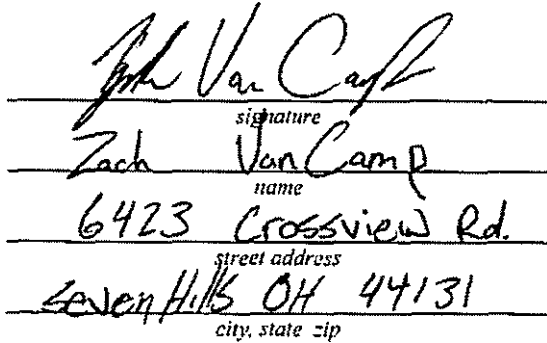 Zach Van Camp
signature
Zach Van Camp
name
6423 Crossview Rd.
street address
Seven Hills OH 44131
city, state zip